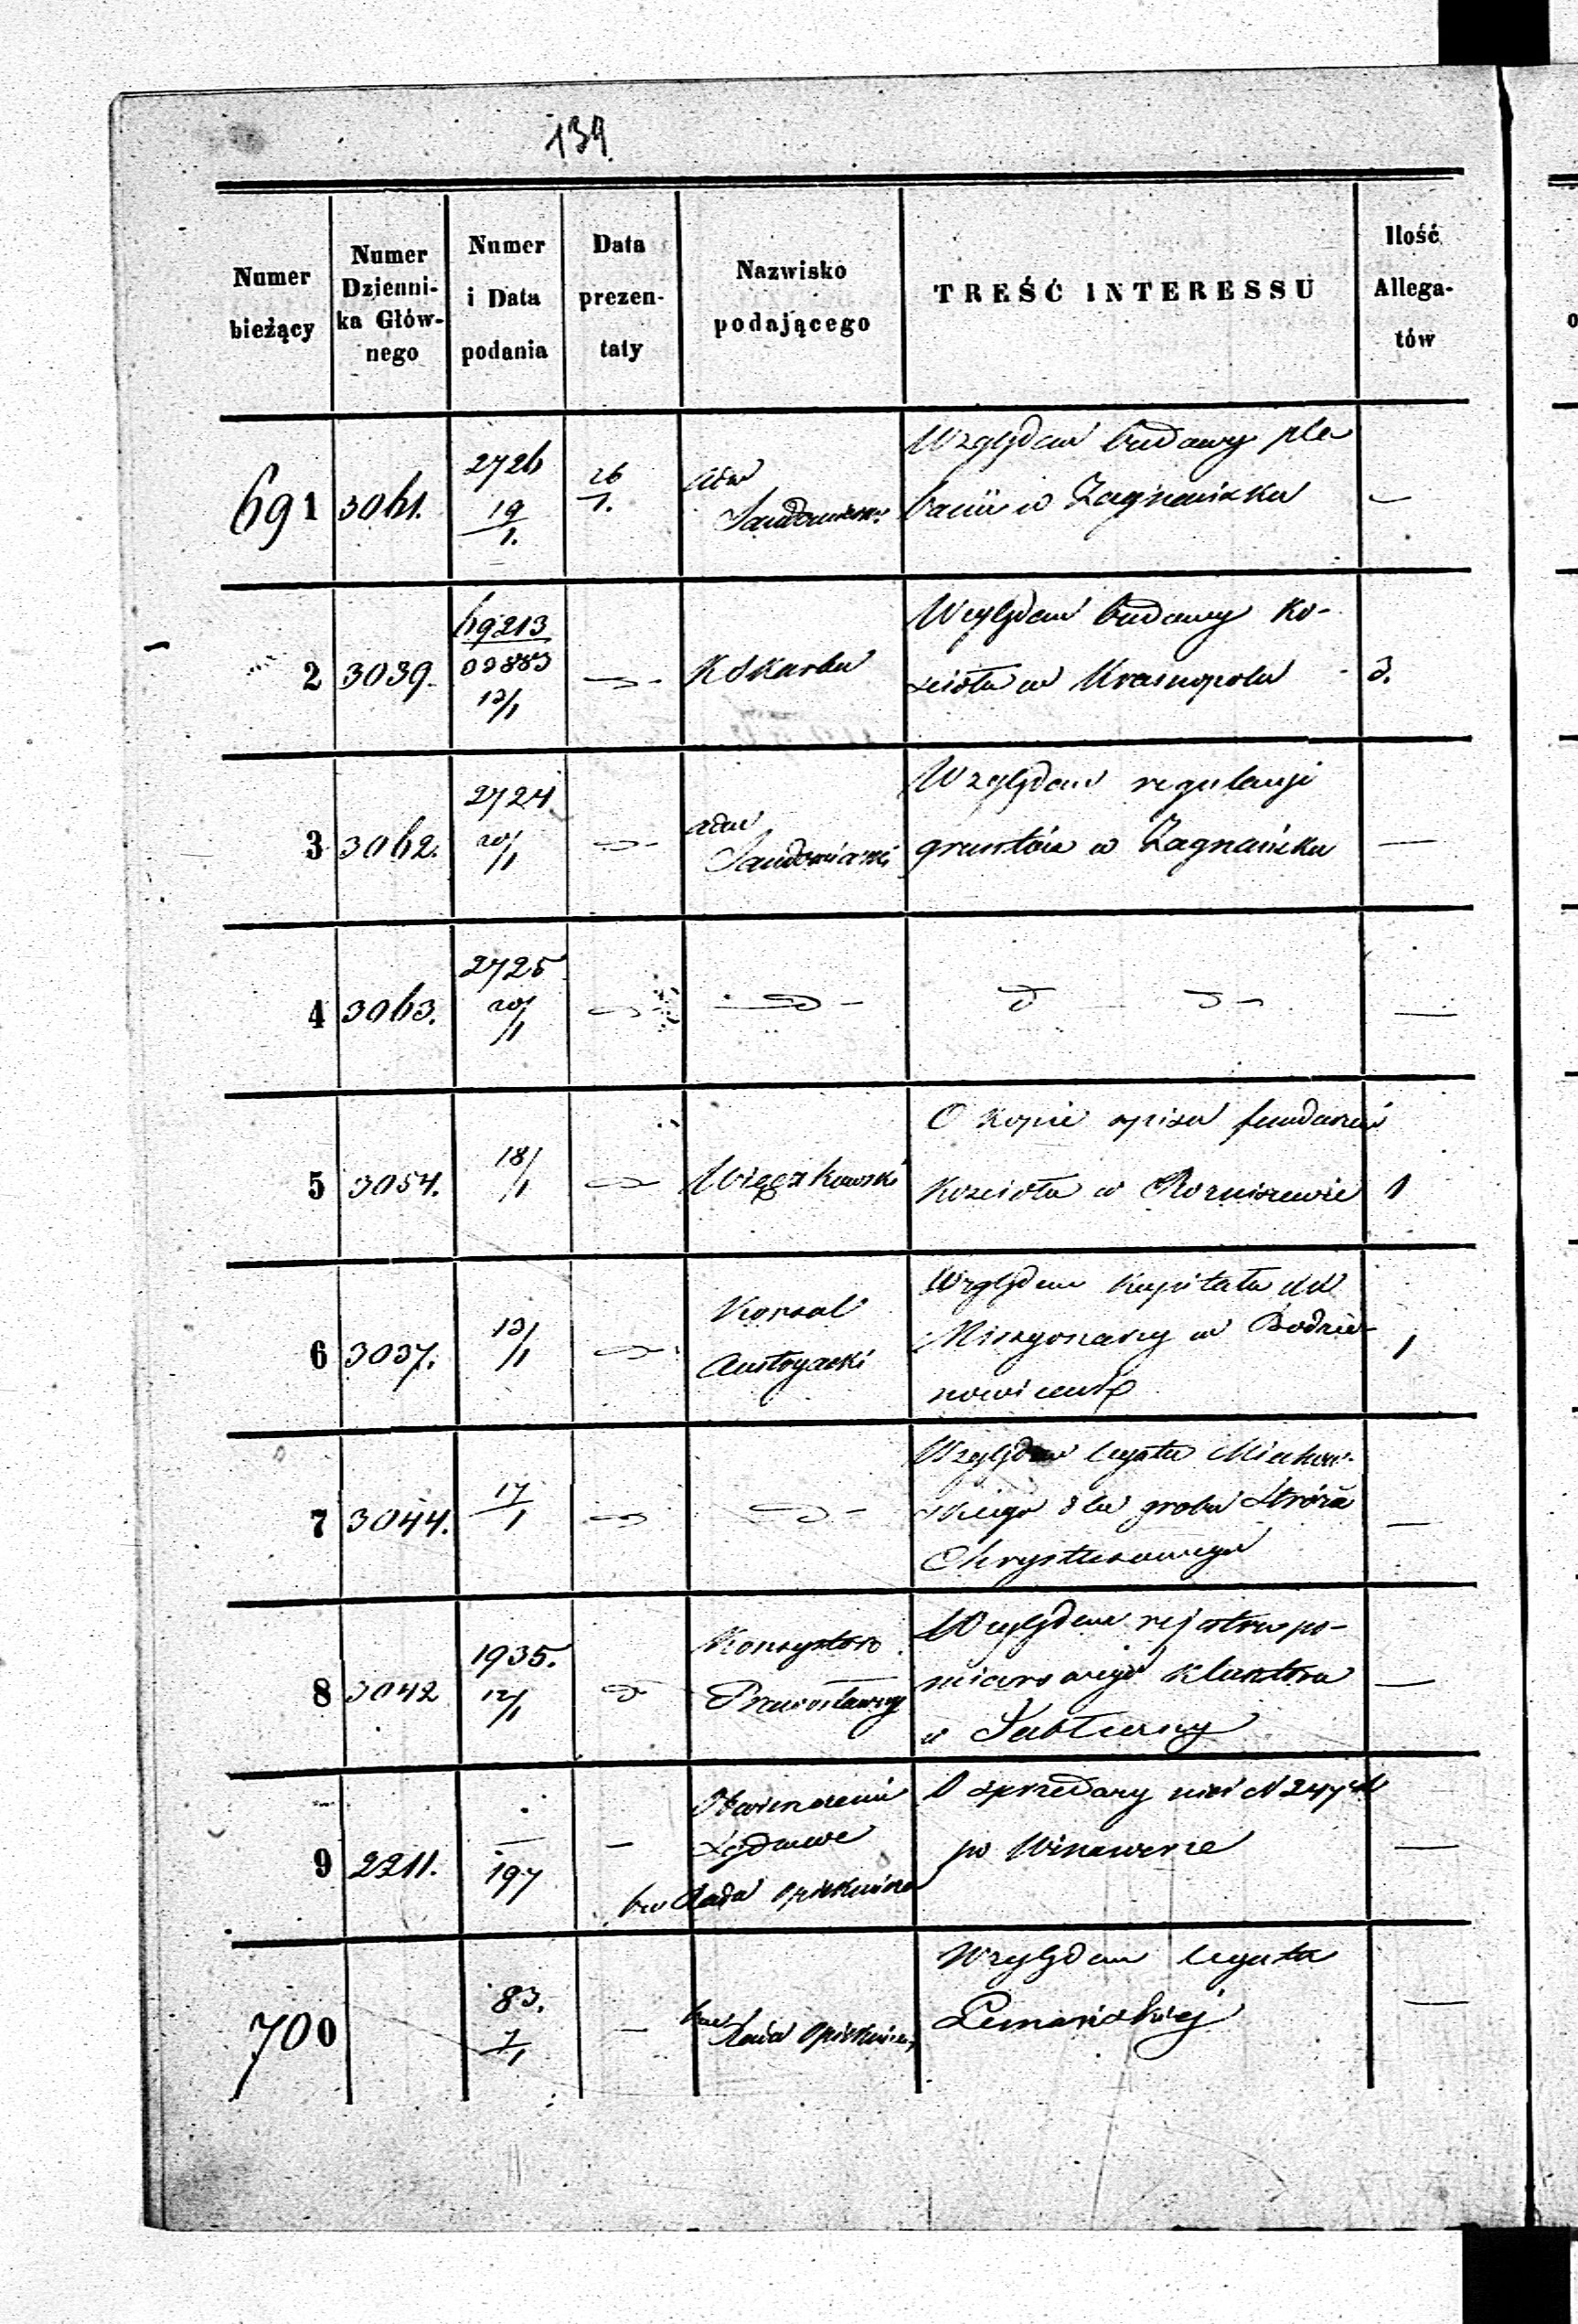 139.
Numer bieżący
Numer Dzienni-ka Głów-nego
Numer i Data podania
Data prezen-taty
Nazwisko podającego
TREŚĆ INTERESSU
Ilość Allega-tów
691 3061. 2726 19/1. 26/1. Sandomiersk. Względem budowy ple
banii w Zagnańsku —
2 3039. 69213 12/1 K Skarbu Względem budowy Ko-
ścioła w Krasnopolu 3.
3 3062. 2724 20/1 Sandomierski Względem regulacji
gruntów w Zagnańsku —
4 3063. 2725 20/1 —
5 3054. 18/1 Więczkowski O kopie opisu funduszów
Kościoła w Rozniszewie 1
6 3037. 13/1 Konsul Austryacki Względem kapitału
Missyonarzy w 1
7 3044. 17/1 Względem legatu
skiego dla grobu Stróża
Chrystusowego —
8 3042 1935. 12/1 Konsystorz Prawosławny Względem rejestru po-
miarowego klasztoru
w Jabłeczny —
9 2211. 197 — Rada Opiekuńcza O sprzedaży nier N 2474
po Winawerze —
700 83. 7/1 — Rada Opiekuńcza Względem legatu
Lemańskiej —